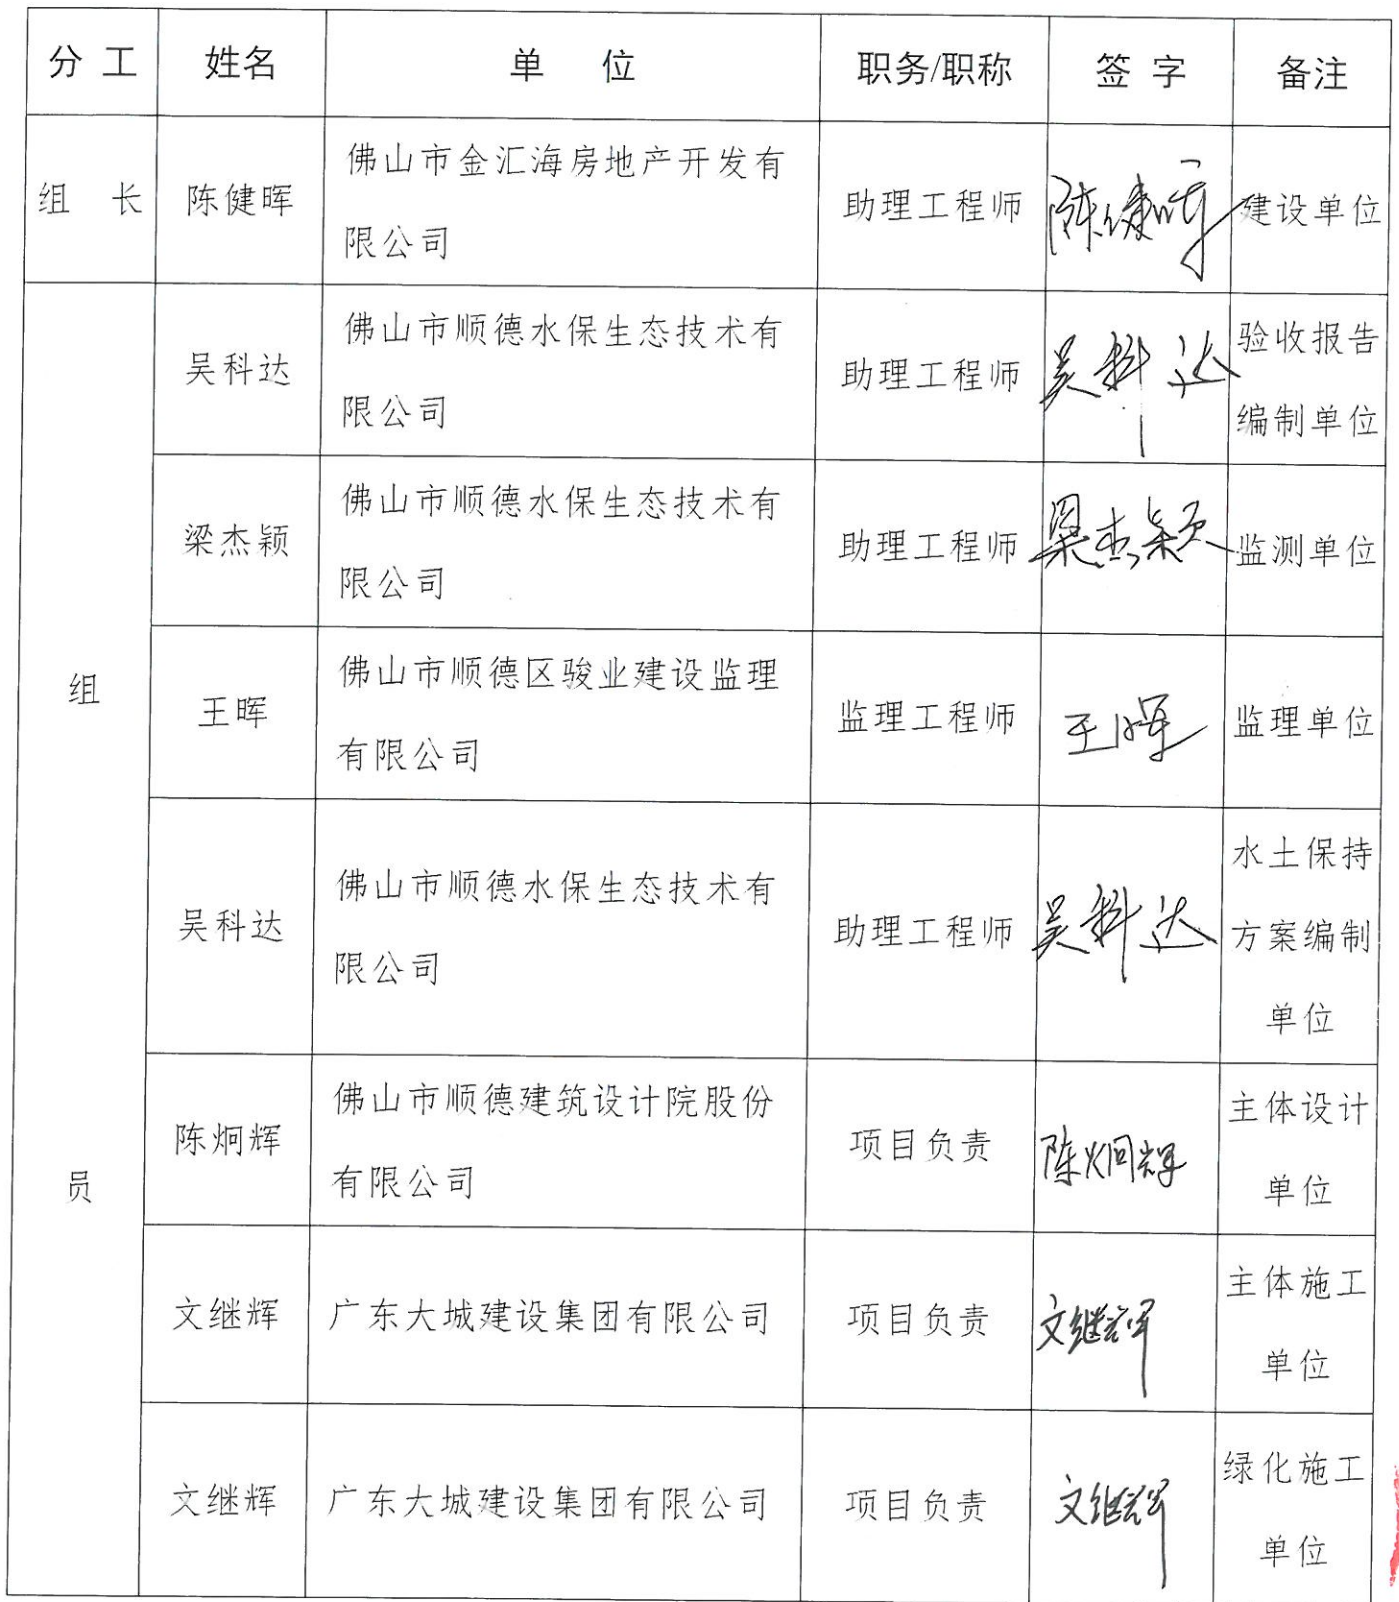 分 工 姓名 单 位 职务/职称 签 字 备注
组 长 陈健晖 佛山市金汇海房地产开发有 助理工程师 陈健晖 建设单位
限公司
吴科达 佛山市顺德水保生态技术有 助理工程师 吴科达 验收报告
限公司 编制单位
梁杰颖 佛山市顺德水保生态技术有 助理工程师 梁杰颖 监测单位
限公司
组
王晖 佛山市顺德区骏业建设监理 监理工程师 王晖 监理单位
有限公司
吴科达 佛山市顺德水保生态技术有 助理工程师 吴科达 水土保持
限公司 方案编制
单位
员
陈炯辉 佛山市顺德建筑设计院股份 项目负责 陈炯辉 主体设计
有限公司 单位
文继辉 广东大城建设集团有限公司 项目负责 文继辉 主体施工
单位
文继辉 广东大城建设集团有限公司 项目负责 文继辉 绿化施工
单位